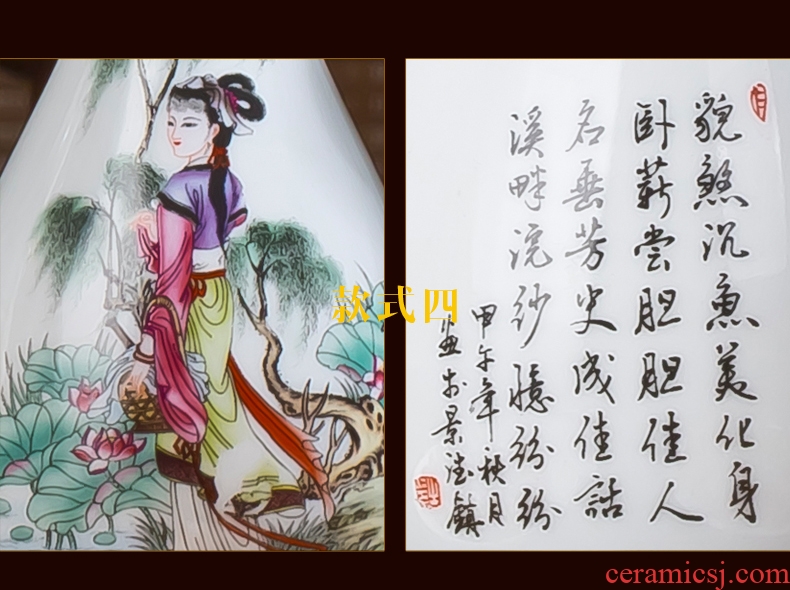 貌煞沉魚美化身
卧薪尝胆胆佳人
名垂芳史成佳話
溪畔浣纱憶纷纷
甲午年秋月
画於景德镇
款式四
ceramicsj.com